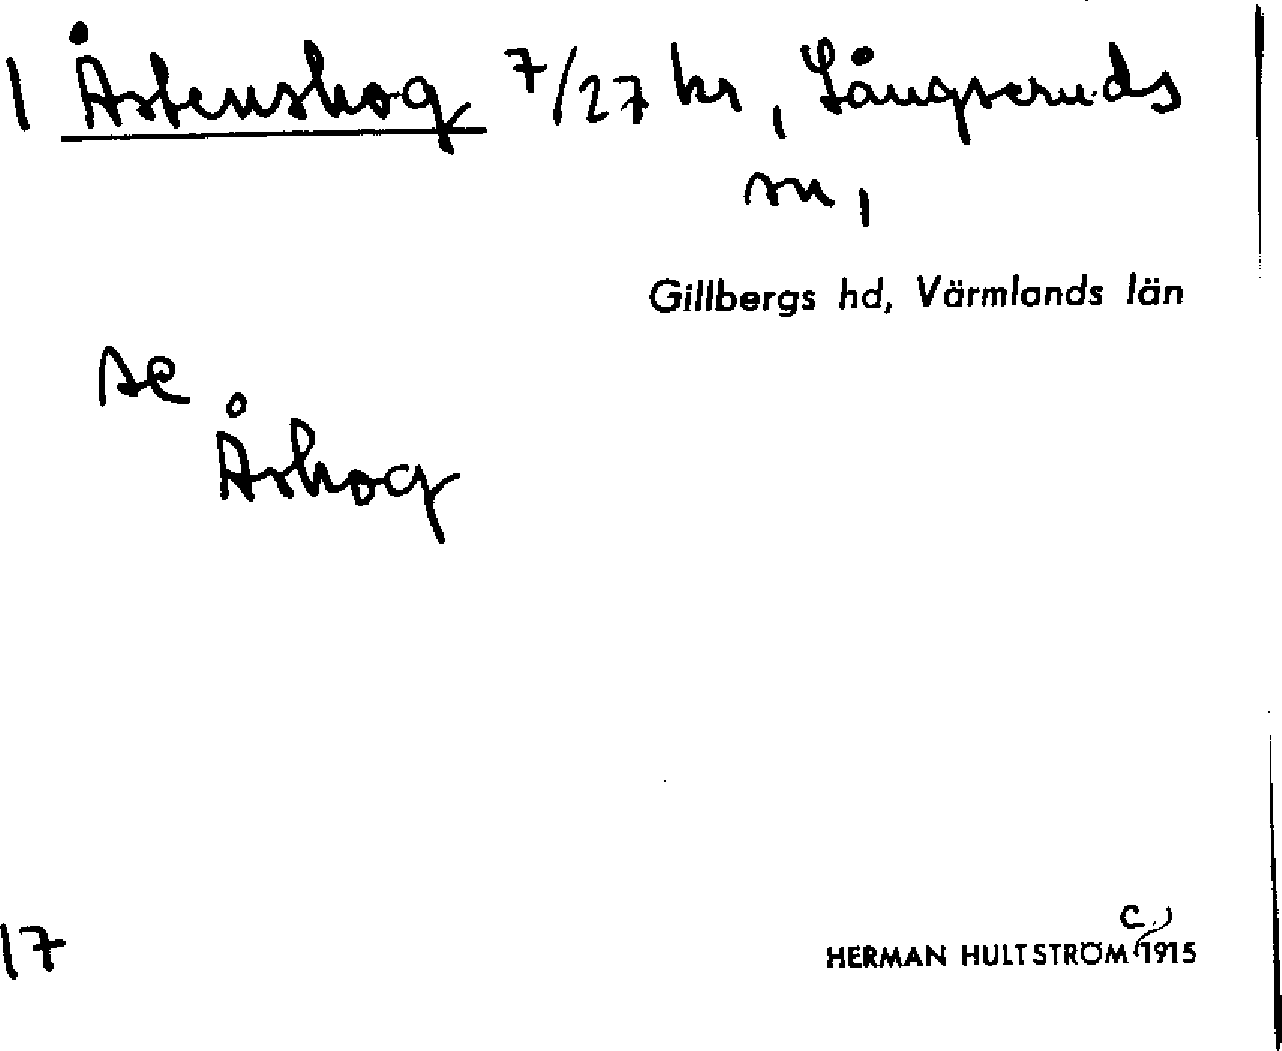 1 Åstenskog 7/27 kr, Långseruds
sn,
Gillbergs hd, Värmlands län
se
Åskog
17
c.
HERMAN HULTSTRÖM 1915